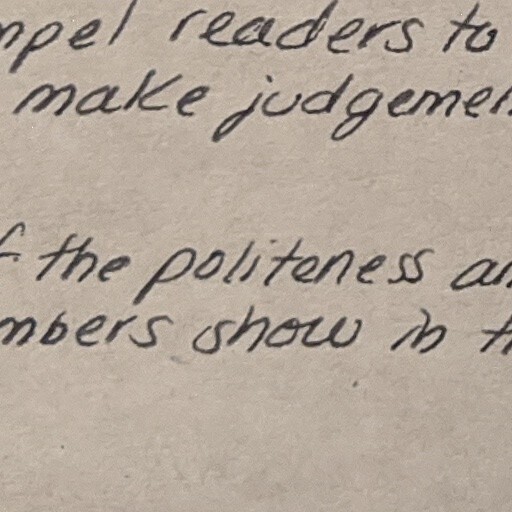 mpel readers to
make judgemen
f the politeness an
mbers show in th